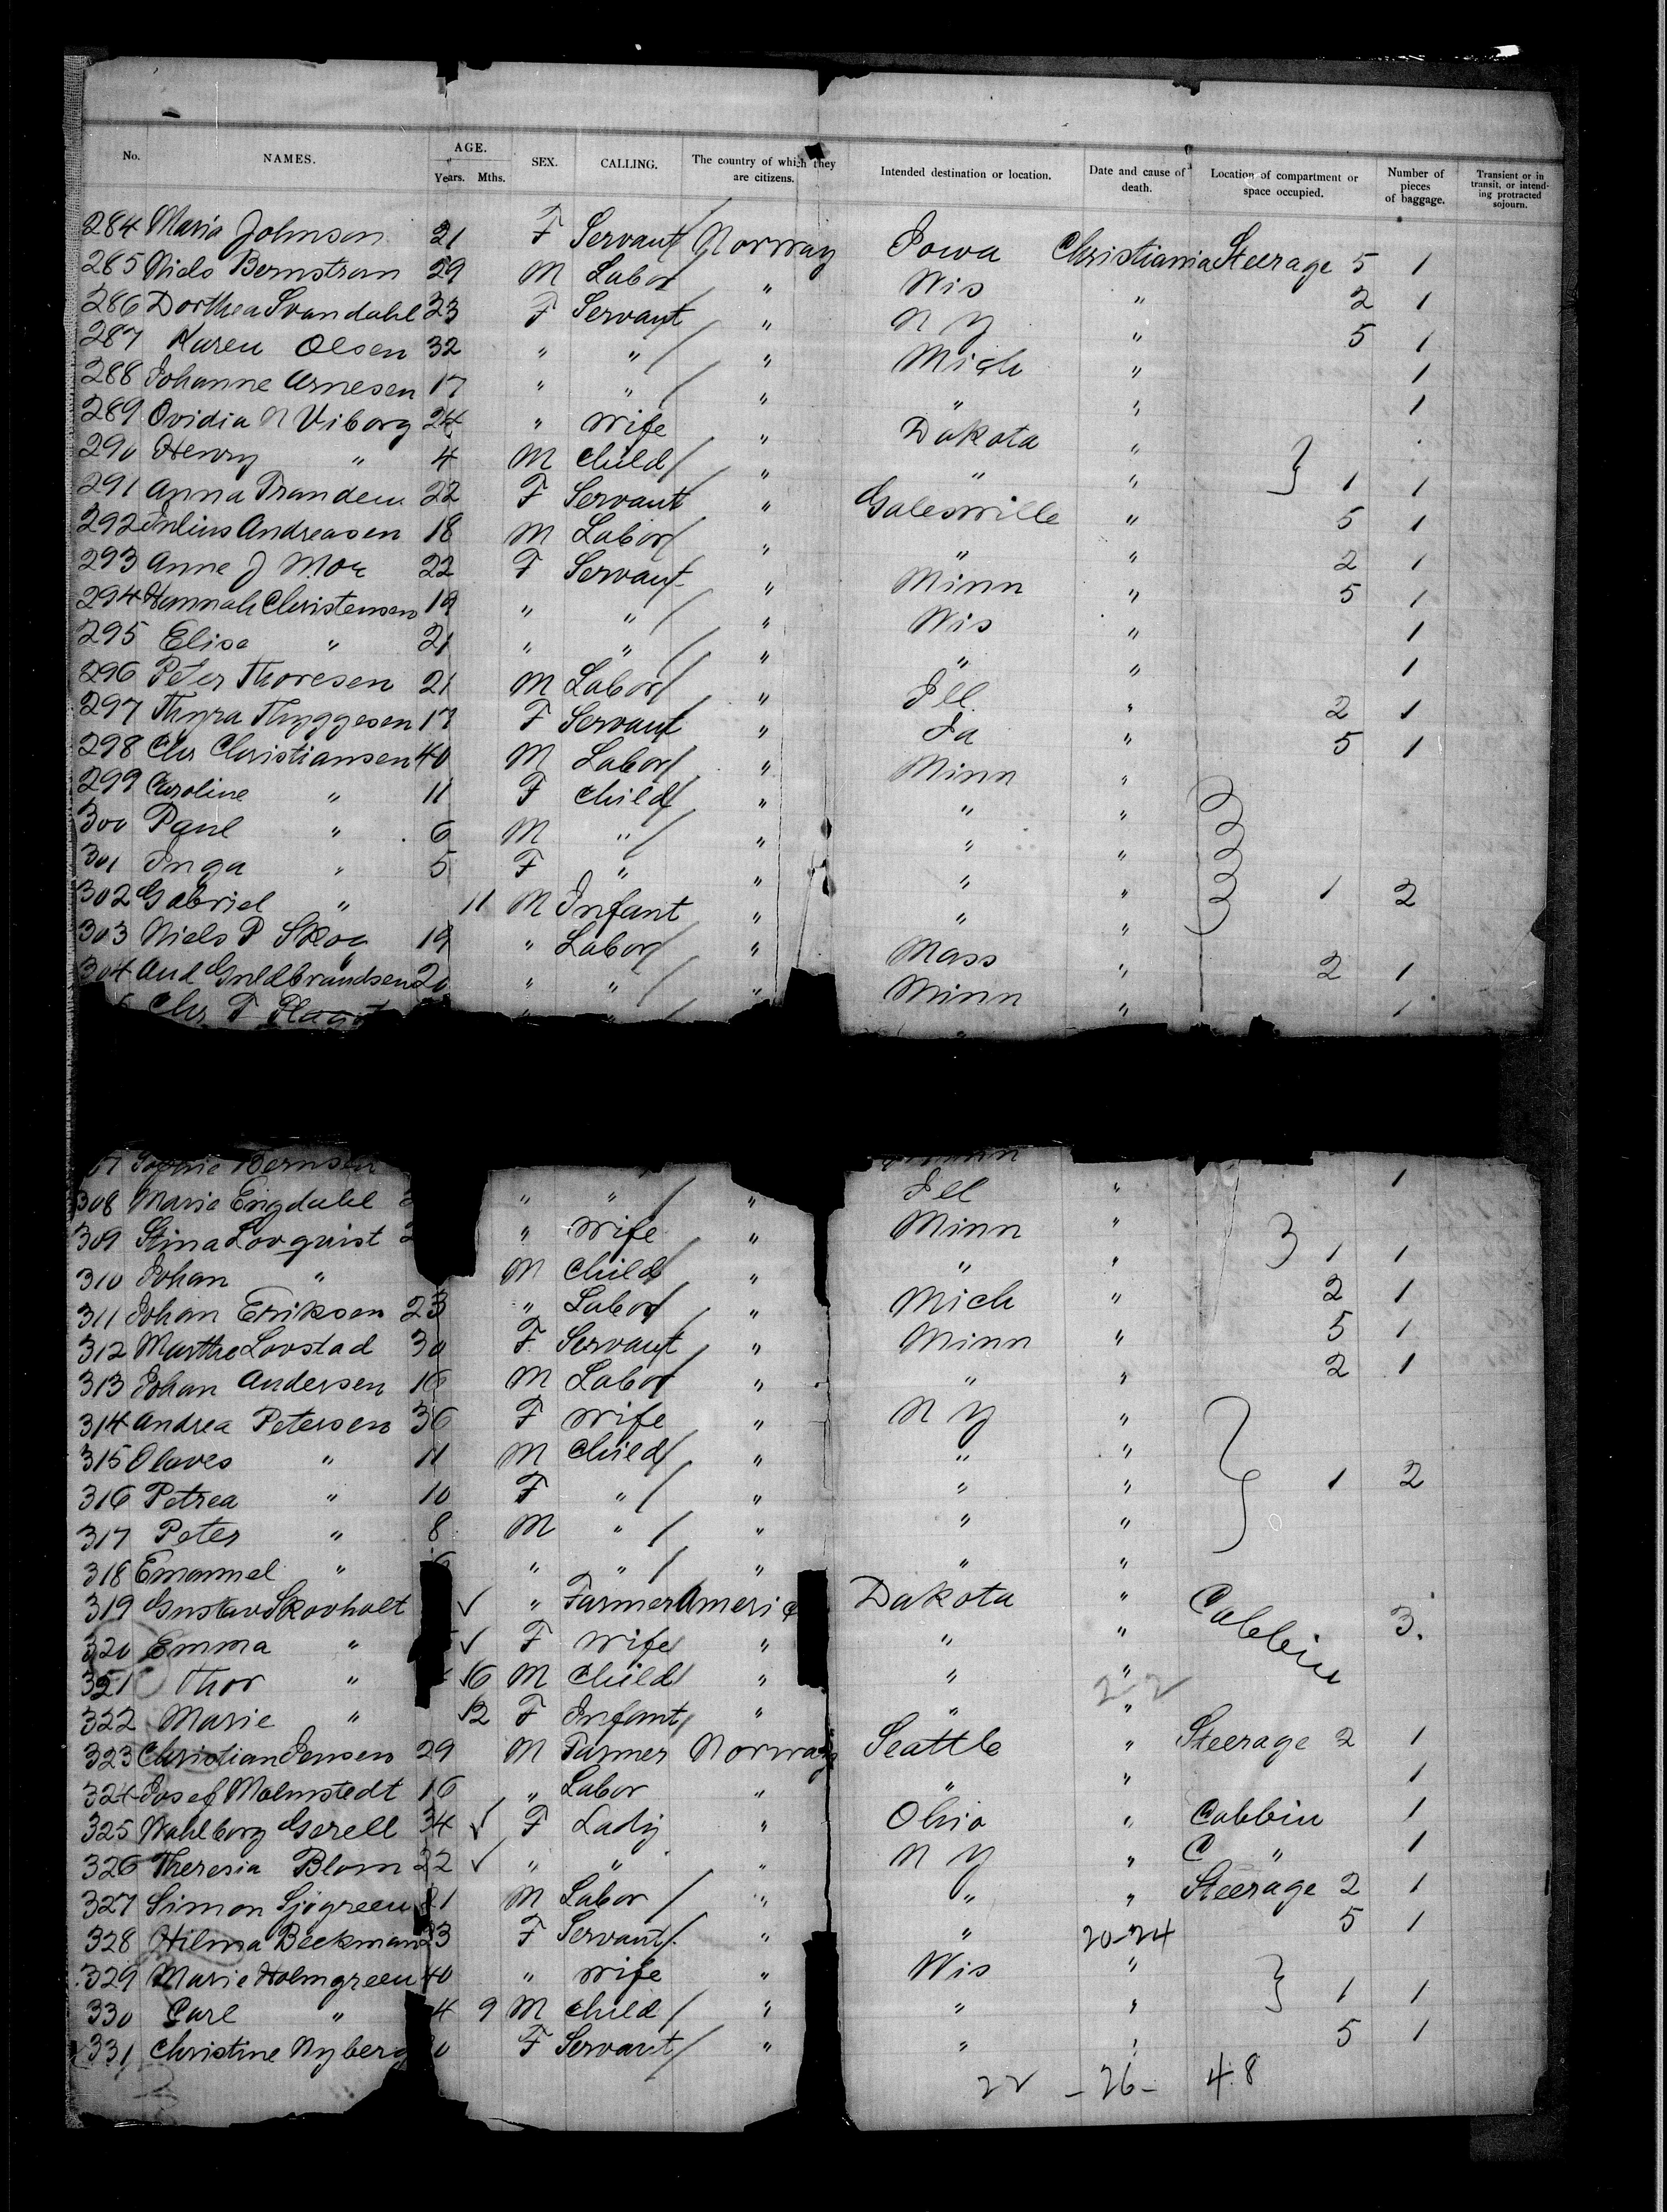 No. NAMES. AGE. Years. Mths. SEX. CALLING. The country of which they are citizens. Intended destination or location. Date and cause of death. Location of compartment or space occupied. Number of pieces of baggage. Transient or in transit, or intending protracted sojourn.
284 Maria Johnson 21 F Servant Norway Iowa Christiania Steerage 5 1
285 Niels Bernstrom 29 M Labor " Wis " 2 1
286 Dorthea Svandahl 23 F Servant " N Y " 5 1
287 Karen Olsen 32 " " " Mich " 1
288 Johanne Arnesen 17 " " " " " 1
289 Ovidia N Viborg 24 " Wife " Dakota "
290 Henry " 4 M Child " " " 1 1
291 Anna 22 F Servant " Galesville " 5 1
292 Julius Andreasen 18 M Labor " " " 2 1
293 Anne J Moe 22 F Servant " Minn " 5 1
294 Hannah Christensen 19 " " " Wis " 1
295 Elise " 21 " " " " " 1
296 Peter Thoresen 21 M Labor " Ill " 2 1
297 Thyra Thyggesen 17 F Servant " Ia " 5 1
298 Chr Christiansen 40 M Labor " Minn "
299 Caroline " 11 F Child " " "
300 Paul " 6 M " " " "
301 Inga " 5 F " " " "
302 Gabriel " 11 M Infant " " " 1 2
303 Niels P Skog 19 " Labor " Mass " 2 1
304 And Guldbrandsen 20 " " " Minn " 1
Chr F
Bernsen Minn 1
308 Marie Engdahl " " " Ill "
309 Stina Lovquist " Wife " Minn "
310 Johan " M Child " " " 1 1
311 Johan Eriksen 23 " Labor " Mich " 2 1
312 Marthe Lovstad 30 F Servant " Minn " 5 1
313 Johan Andersen 16 M Labor " " " 2 1
314 Andrea Petersen 36 F Wife " N Y "
315 Olaves " 11 M Child " " "
316 Petrea " 10 F " " " " 1 2
317 Peter " 8 M " " " "
318 Emanuel " " " " " "
319 Gustav Skovholt " Farmer Americ Dakota " Cabbin 3
320 Emma " F Wife " " "
321 Thor " 6 M Child " " " 2-2
322 Marie " F Infant " " "
323 Christian Jensen 29 M Farmer Norway Seattle " Steerage 2 1
324 Josef Malmstedt 16 " Labor " " " 1
325 Wahlborg Gerell 34 F Lady " Ohio " Cabbin 1
326 Theresia Blom 22 " " " N Y " C " 1
327 Simon Sjögreen 21 M Labor " " " Steerage 2 1
328 Hilma Beckman 23 F Servant " " 20-24 5 1
329 Marie Holmgreen 40 " Wife " Wis "
330 Carl " 4 9 M Child " " " 1 1
331 Christine Nyberg F Servant " " " 5 1
22 - 26 - 48